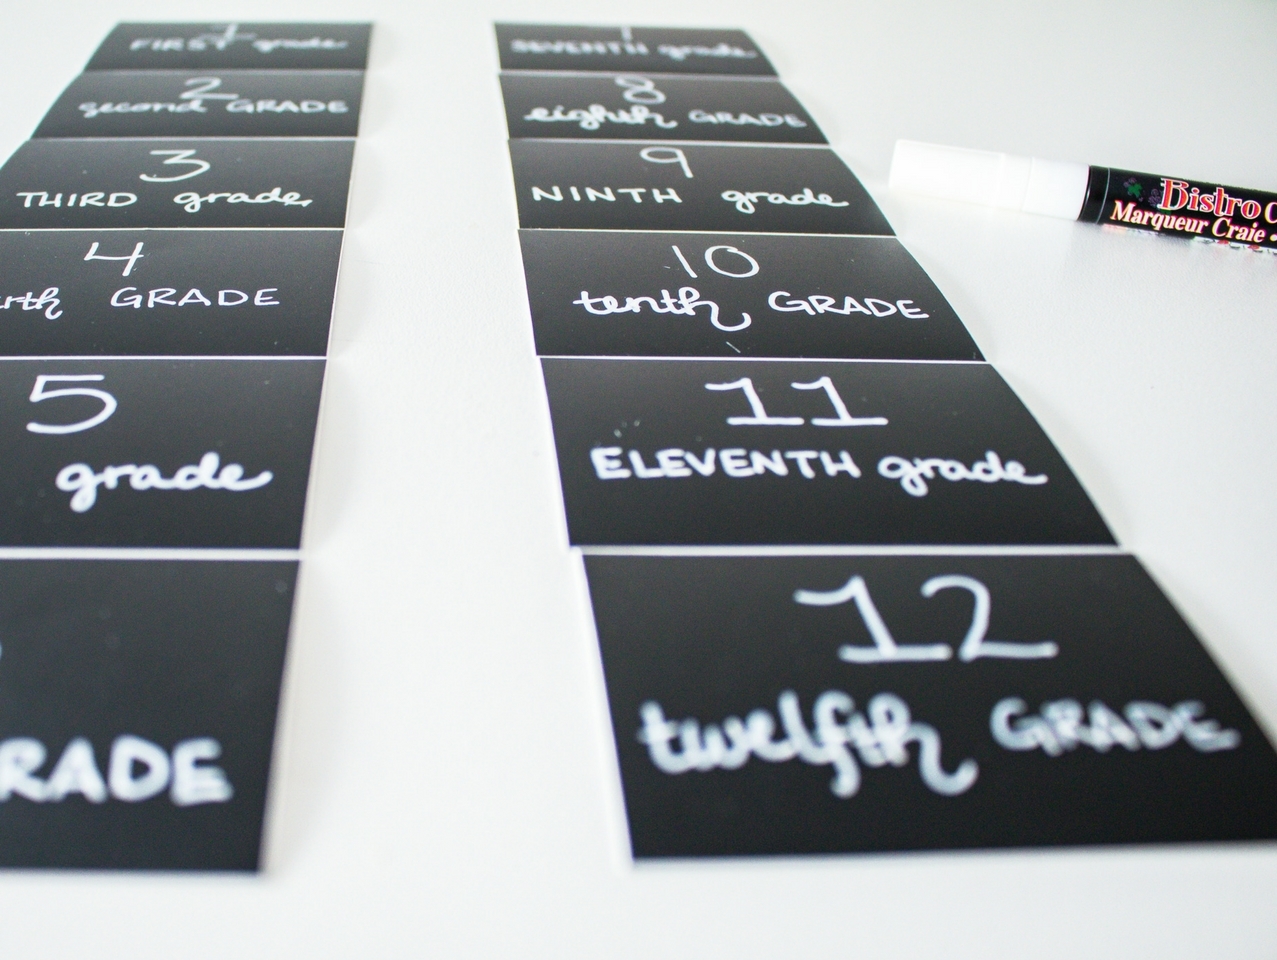 1
FIRST grade
2
second GRADE
3
THIRD grade
4
GRADE
5
grade
GRADE
7
SEVENTH grade
8
eighth GRADE
9
NINTH grade
10
tenth GRADE
11
ELEVENTH grade
12
twelfth GRADE
Bistro
Marqueur Craie